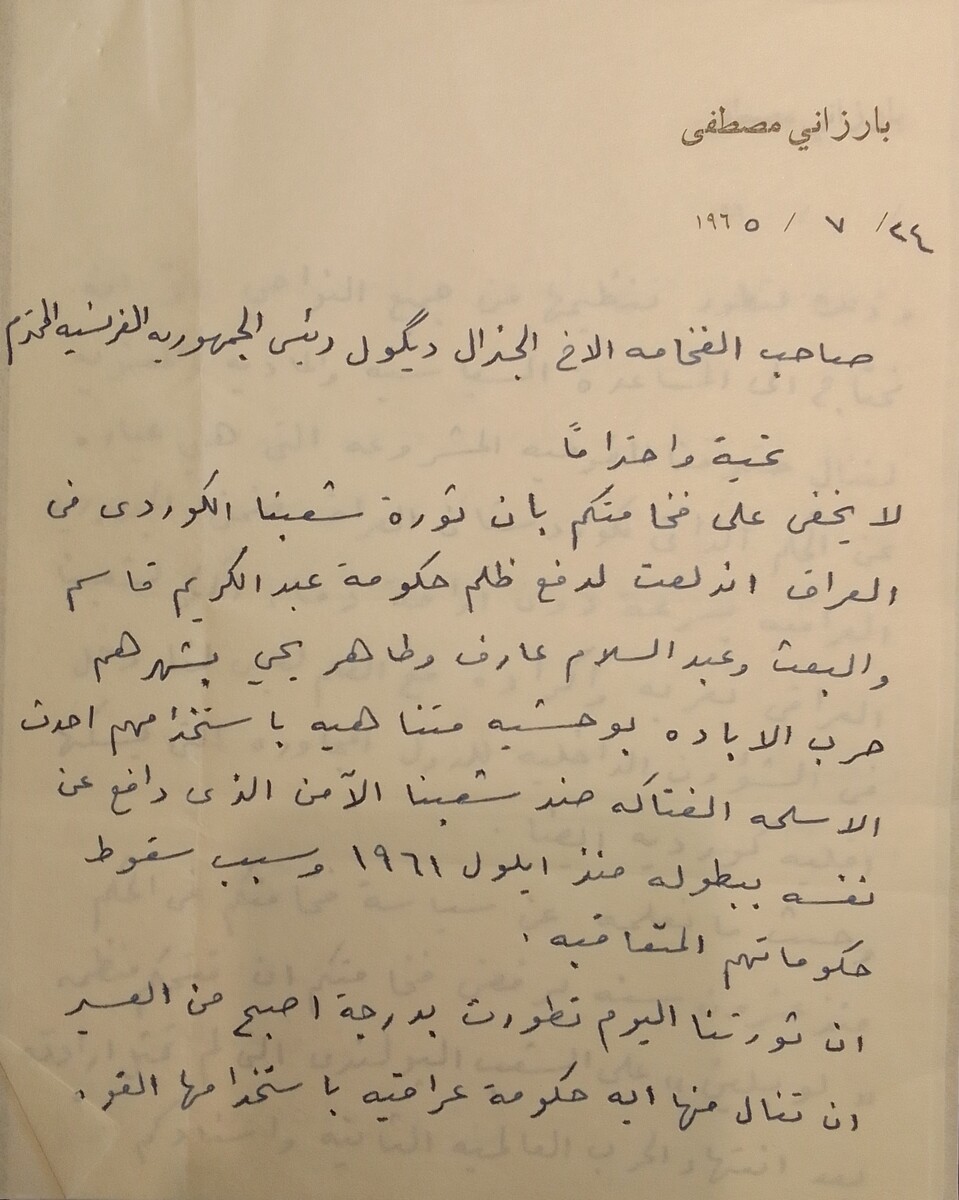 بارزاني مصطفى
٢٤/ ٧ / ١٩٦٥
صاحب الفخامه الاخ الجنرال ديگول رئيس الجمهوريه الفرنسيه المحترم
تحية واحتراماً
لا يخفى على فخامتكم بان ثورة شعبنا الكوردى فى
العراق اندلعت لدفع ظلم حكومة عبد الكريم قاسم
والبعث وعبد السلام عارف وطاهر يحي بشهرهم
حرب الاباده بوحشيه متناهيه باستخدامهم احدث
الاسلحه الفتاكه ضد شعبنا الآمن الذى دافع عن
نفسه ببطوله منذ ايلول ١٩٦١ وسبب سقوط
حكوماتهم المتعاقبه .
ان ثورتنا اليوم تطورت بدرجة اصبح من العسير
ان تنال منها ايه حكومة عراقيه باستخدامها القوه